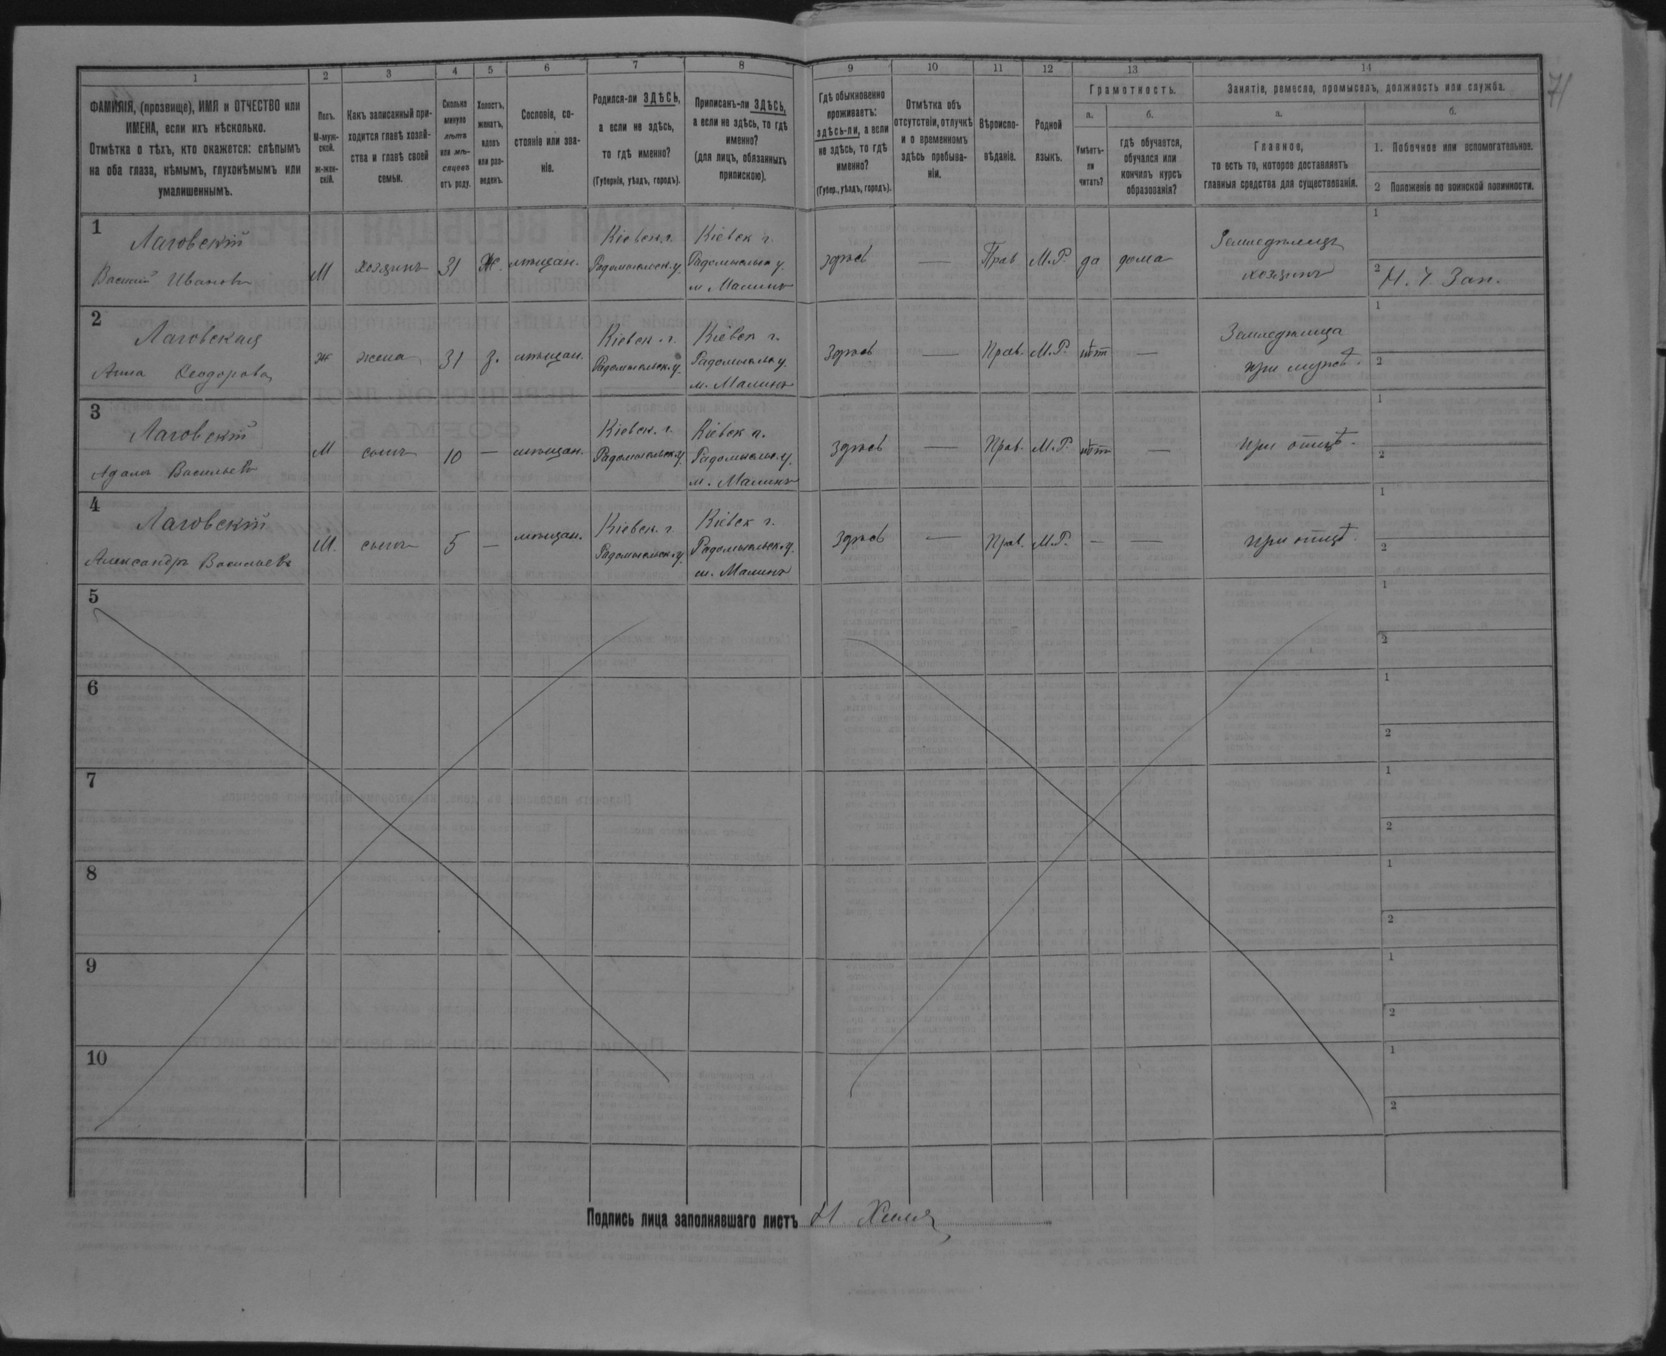 71
1 2 3 4 5 6 7 8 9 10 11 12 13 14
ФАМИЛІЯ, (прозвище), ИМЯ и ОТЧЕСТВО или
ИМЕНА, если ихъ нѣсколько.
Отмѣтка о тѣхъ, кто окажется: слѣпымъ
на оба глаза, нѣмымъ, глухонѣмымъ или
умалишеннымъ.
Полъ.
М-муж-
ской.
ж-жен-
скій.
Какъ записанный при-
ходится главѣ хозяй-
ства и главѣ своей
семьи.
Сколько
минуло
лѣтъ
или мѣ-
сяцевъ
отъ роду.
Холостъ,
женатъ,
вдовъ
или раз-
веденъ.
Сословіе, со-
стояніе или зва-
ніе.
Родился-ли ЗДѢСЬ,
а если не здѣсь,
то гдѣ именно?
(Губернія, уѣздъ, городъ).
Приписанъ-ли ЗДѢСЬ,
а если не здѣсь, то гдѣ
именно?
(для лицъ, обязанныхъ
припискою).
Гдѣ обыкновенно
проживаетъ:
здѣсь-ли, а если
не здѣсь, то гдѣ
именно?
(Губер., уѣздъ, городъ).
Отмѣтка объ
отсутствіи, отлучкѣ
и о временномъ
здѣсь пребыва-
ніи.
Вѣроиспо-
вѣданіе.
Родной
языкъ.
Грамотность.
а.
Умѣетъ-
ли
читать?
б.
гдѣ обучается,
обучался или
кончилъ курсъ
образованія?
Занятіе, ремесло, промыселъ, должность или служба.
а.
Главное,
то есть то, которое доставляетъ
главныя средства для существованія.
б.
1. Побочное или вспомогательное.
2 Положеніе по воинской повинности.
1
Лаговскій
Василій Ивановъ
М
хозяинъ
31
Ж.
мѣщан.
Кіевск. г.
Радомысльск. у.
Кіевск г.
Радомысльск у.
м. Малинъ
здѣсь
Прав
М.Р.
да
дома
Земледѣлецъ
хозяинъ
1
2 Н. Ч. Зап.
2
Лаговская
Анна Ѳеодорова
ж
жена
31
з.
мѣщан.
Кіевск. г.
Радомысльск. у.
Кіевск г.
Радомысльск у.
м. Малинъ
здѣсь
—
Прав.
М.Р.
нѣт
—
Земледѣлица
при мужѣ.
1
2
3
Лаговскій
Адамъ Васильевъ
М
сынъ
10
—
мѣщан.
Кіевск. г.
Радомысльск. у.
Кіевск г.
Радомысльск. у.
м. Малинъ
здѣсь
—
Прав.
М.Р.
нѣт
—
при отцѣ.
1
2
4
Лаговскій
Александръ Васильевъ
М.
сынъ
5
—
мѣщан.
Кіевск. г.
Радомысльск. у.
Кіевск г.
Радомысльск. у.
м. Малинъ
здѣсь
—
Прав.
М.Р.
—
—
при отцѣ.
1
2
5
1
2
6
1
2
7
1
2
8
1
2
9
1
2
10
1
2
Подпись лица заполнявшаго листъ